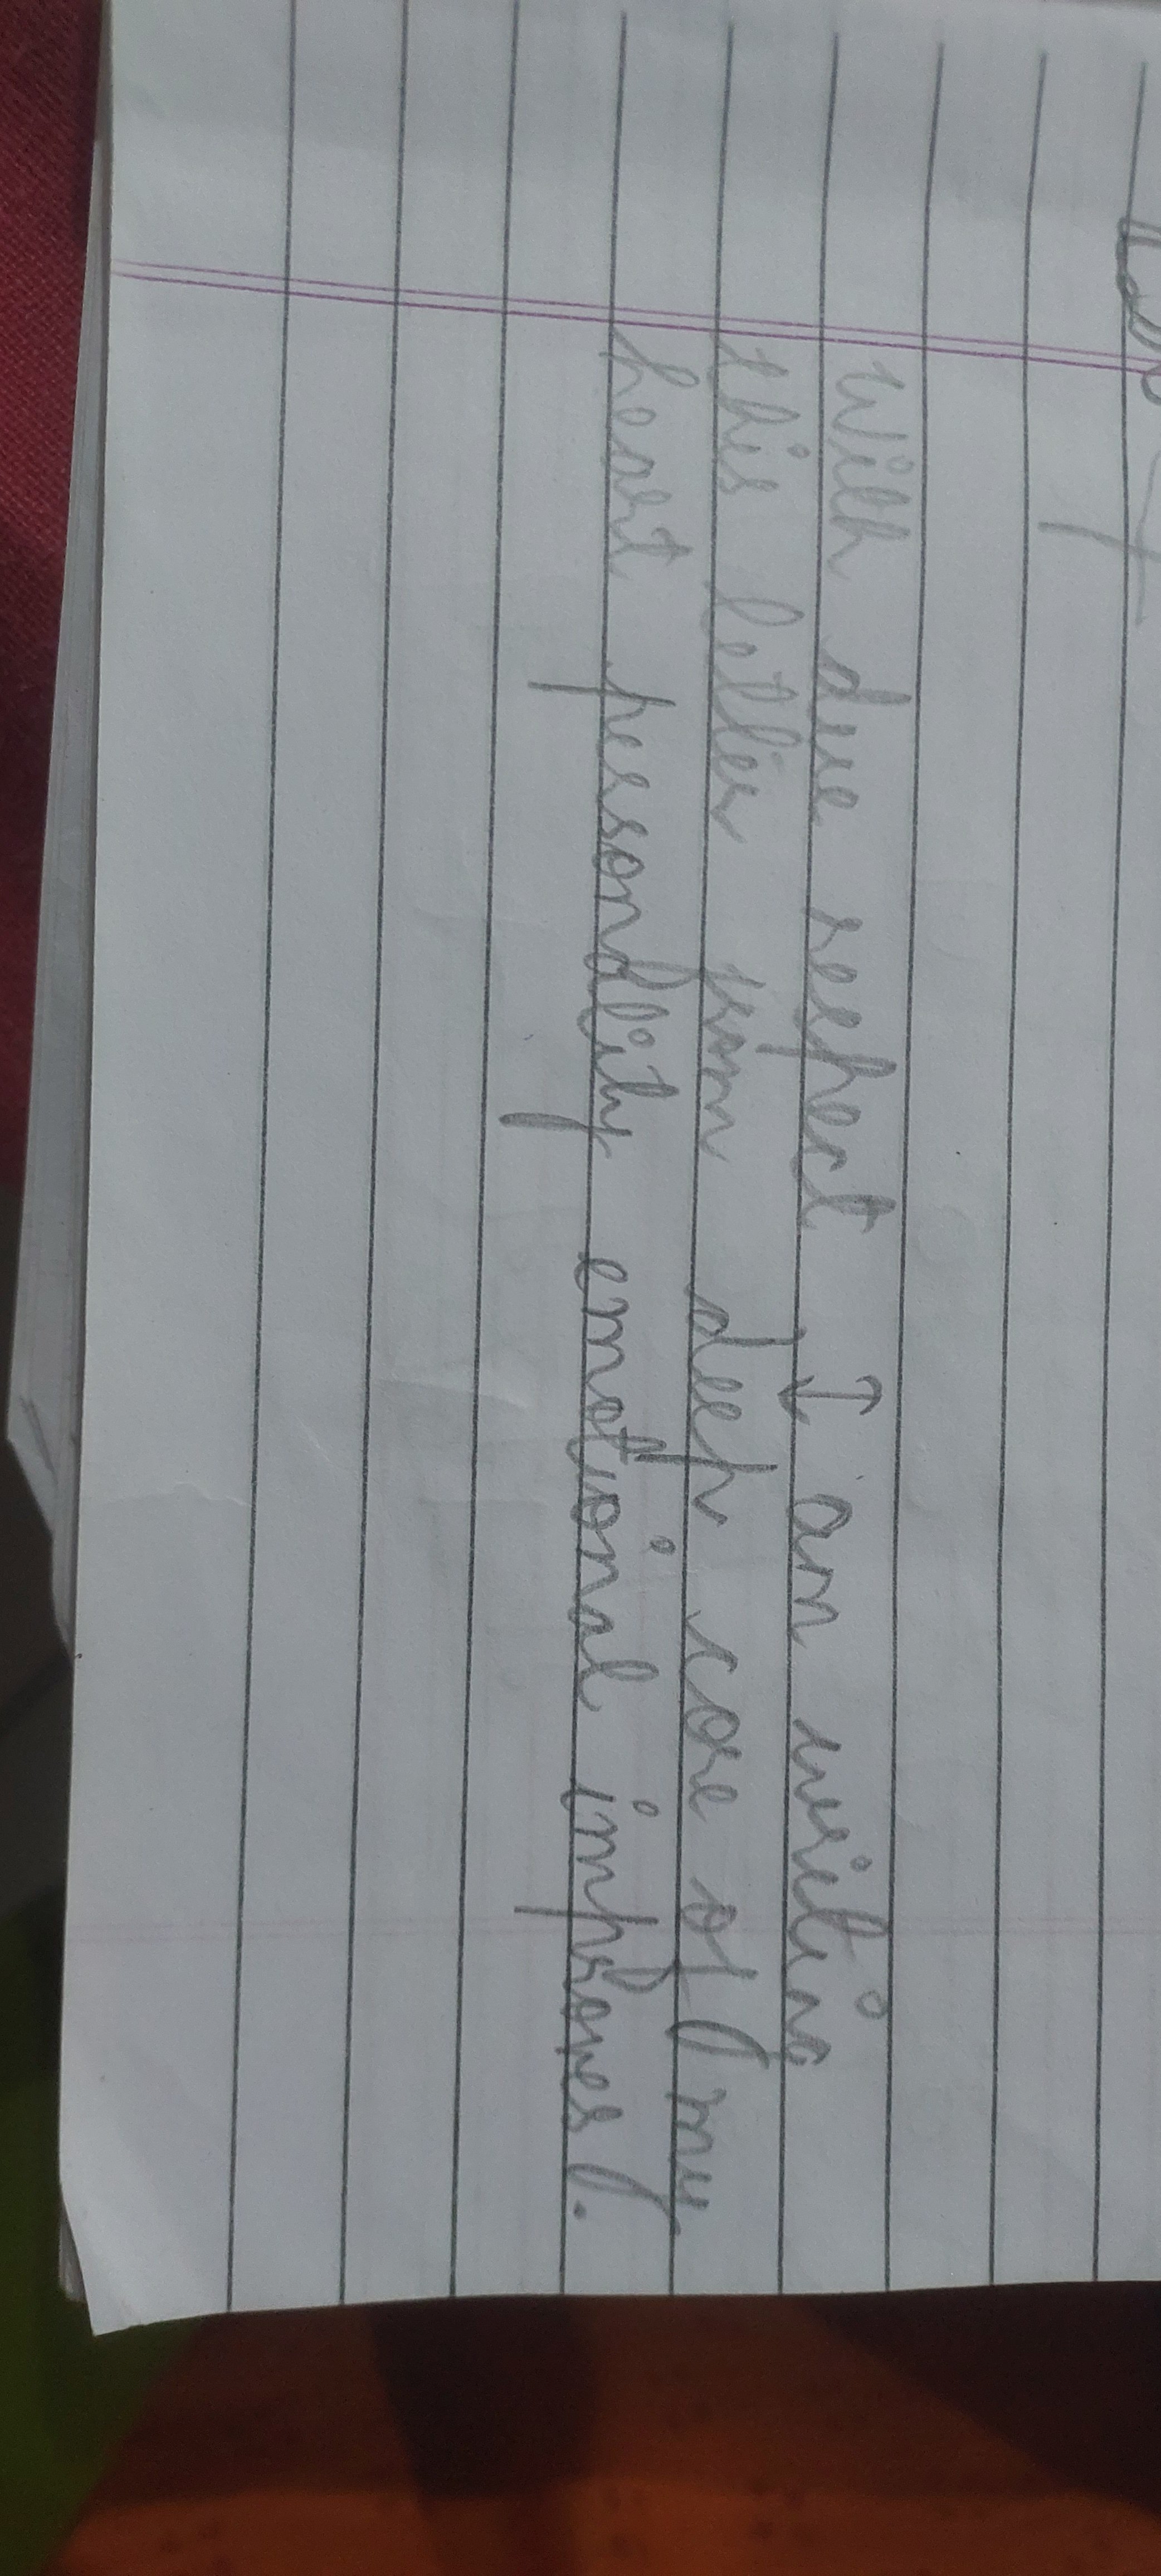 With due respect I am writing
this letter from deep core of my
heart personality emotional